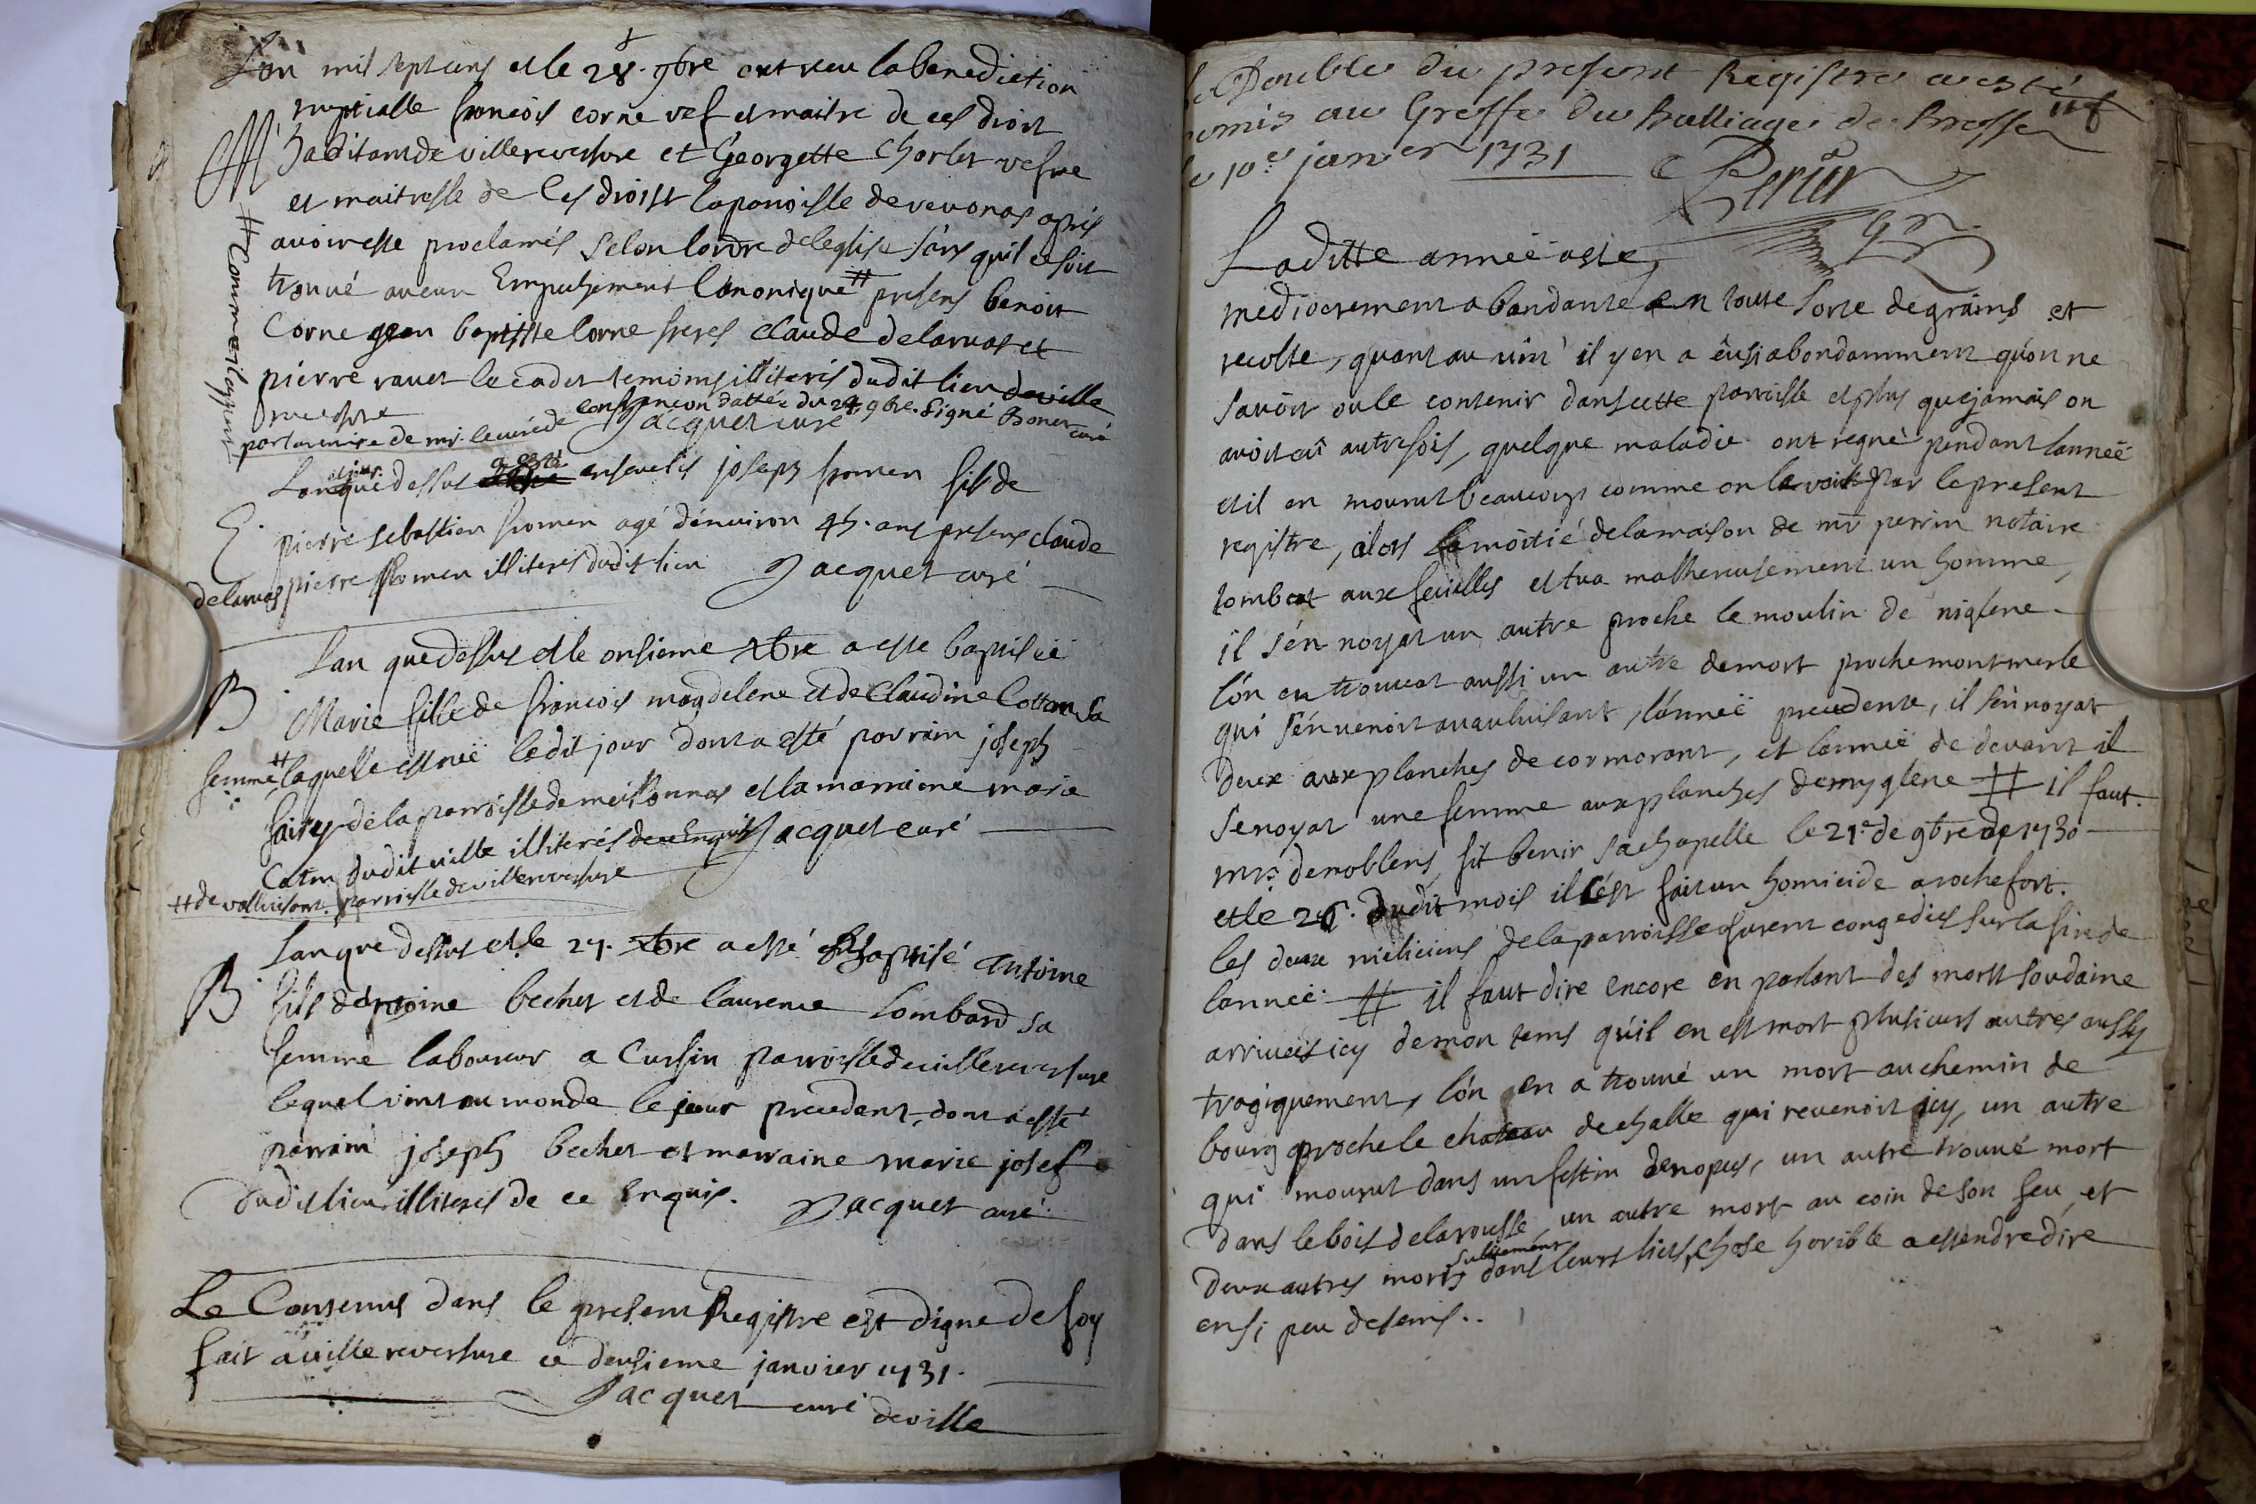 L'an mil sept cens et le 28. 9bre ont receu la benediction
nuptialle francois corne vef et maitre de ces droit
M
habitant de villereversure et Georgette Charlet vefve
et maitresse de ces droist la paroisse de revonas apres
avoir esté proclamés selon l'ordre de leglise sans quil ce soit
trouvé aucun Empechement Canonique # presens benoit
Corne jean baptiste Corne freres claude delaruas et
pierre ravet le cadet temoins illiterés dudit lieu de ville
reversure
# comme il appert
par la remise de mr. le curé de dattée du 27. 9bre. signé Bonet curé
Jacquet curé
L'an et jour que dessus a esté ensevelis joseph fromen fils de
E.
pierre sebastien fromen agé d'environ 45. ans presens claude
delaruas pierre fromen illiterés dudit lieu Jacquet curé
L'an que dessus et le onsieme xbre a esté baptiséé
B.
Marie fille de francois magdelene et de Claudine Cottan sa
femme # laquelle est néé le dit jour dont a esté parrain joseph
de la parroisse de meillonnas et la marraine marie
dudit ville illiterés de ce Enquis Jacquet curé
# de valluisant parroisse de villereversure
L'an que dessus et le 21. xbre a esté baptisé Antoine
B.
fils d'antoine bechet et de laurence Lombard sa
femme laboureur a Cussin parroisse de villereversure
lequel vint au monde le jour precedent, dont a esté
parrain joseph bechet et marraine marie josef
dudit lieu illiterés de ce Enquis. Jacquet curé
Le Contenus dans le present Registre est digne de foy
fait a villereversure ce deusieme janvier 1731.
Jacquet curé de ville
Le Double du present Registre a esté
remis au Greffe du Balliage de Bresse
le 10e janvier 1731
Perier
La ditte année a esté
mediocrement abondante en toute sorte de grains et
recolte, quant au vin il y en a eu si abondamment qu'on ne
savoit ou le contenir dans cette parroisse et plus que jamais on
avoit eu autrefois, quelque maladie ont regné pendant l'année
et il en mourut beaucoup comme on le voit par le present
registre, alors la moitié de la maison de mr perrin notaire
tombat aux feuilles et tua malheureusement un homme,
il s'en noyat un autre proche le moulin de niglene
l'on en trouvat aussi un autre de mort proche montmerle
qui s'en venoit a valuisant, l'année precedente, il s'en noyat
deux aux planches de cormorant, et l'année de devant il
se noyat une femme aux planches de myglene # il faut.
mrs. de noblens fit benir sa chapelle le 21e de 9bre de 1730
et le 26. dudit mois il s'est fait un homicide a rochefort.
les deux miliciens de la parroisse furent congediés sur la fin de
l'année. # il faut dire encore en parlant des mort soudaine
arrivéés icy de mon tems qu'il en est mort plusieurs autres aussy
tragiquement, l'on en a trouvé un mort au chemin de
bourg proche le chateau de challe qui revenoit icy, un autre
qui mourut dans un festin de nopces, un autre trouvé mort
dans le bois de larousse, un autre mort au coin de son feu, et
deux autres morts subitement dans leurs lits, chose horible a entendre dire
en si peu de tems..